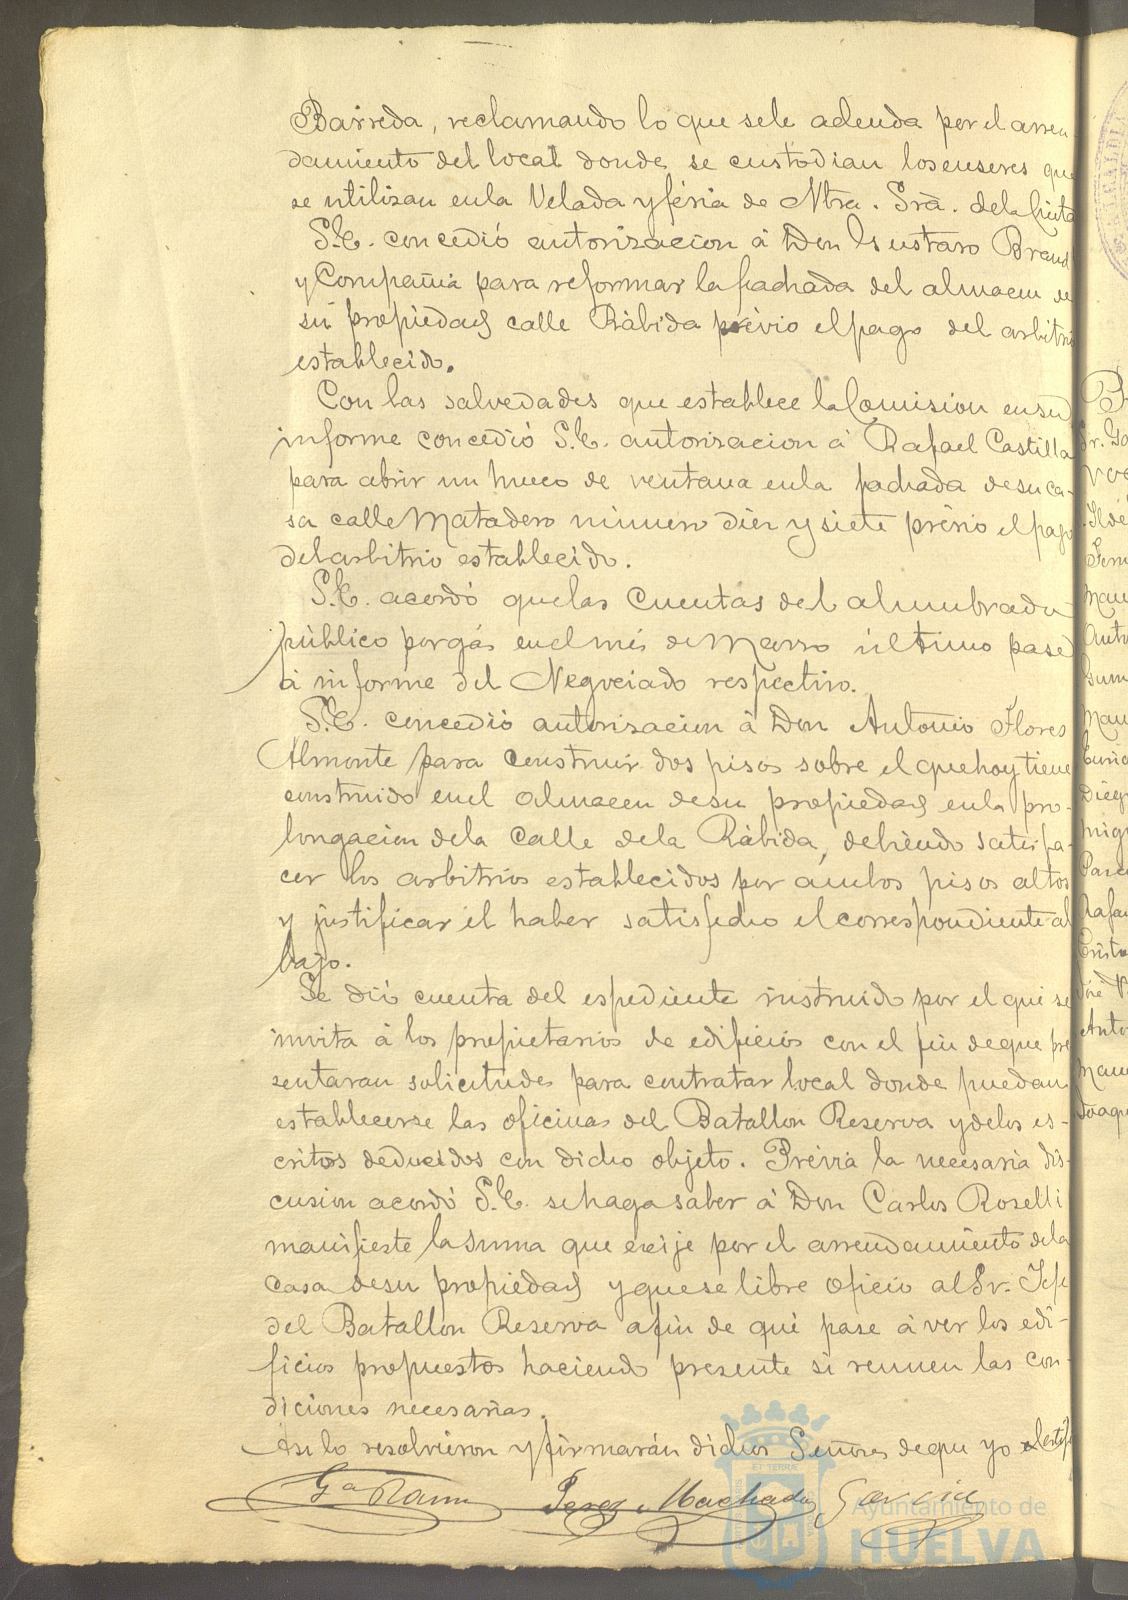 Barreda, reclamando lo que sele adeuda por el arren
damiento del local donde, se custodian losenseres que
se utilizan enla Velada yféria de Ntra. Srã. dela Cinta
S.E. concedió autorizacion á Don Gustavo Brand
y Compañia para reformar la fachada del almacen de
su propiedad calle Rábida prévio elpago del arbitrio
establecido.
Con las salvedades que establece la Comision ensu
informe concedió S.E. autorizacion á Rafael Castilla
para abrir un hueco de ventana enla fachada desu ca-
sa calle Matadero número diez y siete prévio el pago
delarbitrio establecido.
S.E. acordó quelas cuentas del alumbrado
público porgás enel més de Marzo último pase
á informe del Negociado respectivo.
S.E. concedió autorizacion á Don Antonio Flores
Almonte para construir dos pisos sobre el quehoy tiene
construido enel almacen desu propiedad enla pro-
longacion dela calle dela Rábida, debiendo satisfa-
cer los arbitrios establecidos por ámbos pisos altos
y justificar el haber satisfecho el correspondiente al
bajo.
Se dió cuenta del espediente instruido por el que se
invita á los propietarios de edificios con el fin deque pre
sentaran solicitudes para contratar local donde puedan
establecerse las oficinas del Batallon Reserva ydelos es-
critos deducidos con dicho objeto. Prévia la necesaria dis-
cusion acordó S.E. sehaga saber á Don Carlos Roselli
manifieste la suma que exije por el arrendamiento dela
casa desu propiedad y quese libre oficio al Sr. Jefe
del Batallon Reserva afin de que pase á ver los edi-
ficios propuestos haciendo presente si reunen las con-
diciones necesarias.
Asi lo resolvieron y firmarán dichos Señores deque yo certif
Gª Ramos Perez Machado Garcia
Ayuntamiento de
HUELVA